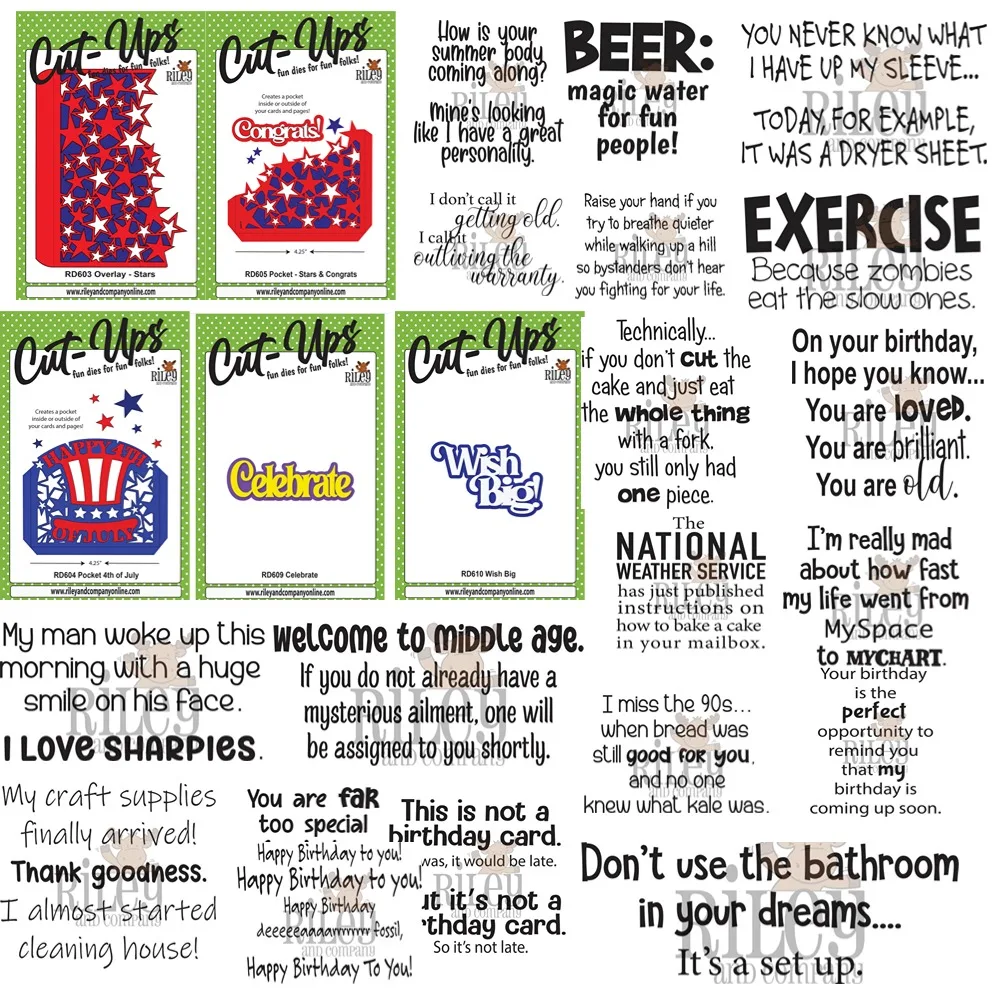 Cut-Ups
fun dies for fun folks!
RiLEY
AND COMPANY
RD603 Overlay - Stars
www.rileyandcompanyonline.com
Cut-Ups
fun dies for fun folks!
RiLEY
AND COMPANY
Creates a pocket
inside or outside of
your cards and pages!
Congrats!
4.25"
RD605 Pocket - Stars & Congrats
www.rileyandcompanyonline.com
How is your
summer body
coming along?
Mine's looking
like I have a great
personality.
BEER:
magic water
for fun
people!
YOU NEVER KNOW WHAT
I HAVE UP MY SLEEVE...
TODAY, FOR EXAMPLE,
IT WAS A DRYER SHEET.
I don't call it
getting old.
I call it
outliving the
warranty.
Raise your hand if you
try to breathe quieter
while walking up a hill
so bystanders don't hear
you fighting for your life.
EXERCISE
Because zombies
eat the slow ones.
Cut-Ups
fun dies for fun folks!
RiLEY
AND COMPANY
Creates a pocket
inside or outside of
your cards and pages!
HAPPY 4TH
OF JULY
4.25"
RD604 Pocket 4th of July
www.rileyandcompanyonline.com
Cut-Ups
fun dies for fun folks!
RiLEY
AND COMPANY
Celebrate
RD609 Celebrate
www.rileyandcompanyonline.com
Cut-Ups
fun dies for fun folks!
RiLEY
AND COMPANY
Wish
Big!
RD610 Wish Big
www.rileyandcompanyonline.com
Technically...
if you don't cut the
cake and just eat
the whole thing
with a fork.
you still only had
one piece.
On your birthday,
I hope you know...
You are loved.
You are brilliant.
You are old.
The
NATIONAL
WEATHER SERVICE
has just published
instructions on
how to bake a cake
in your mailbox.
I'm really mad
about how fast
my life went from
MySpace
to MYCHART.
My man woke up this
morning with a huge
smile on his face.
I LOVE SHARPIES.
welcome to middle age.
If you do not already have a
mysterious ailment, one will
be assigned to you shortly.
I miss the 90s...
when bread was
still good for you,
and no one
knew what kale was.
Your birthday
is the
perfect
opportunity to
remind you
that my
birthday is
coming up soon.
My craft supplies
finally arrived!
Thank goodness.
I almost started
cleaning house!
You are far
too special
Happy Birthday to you!
Happy Birthday to you!
Happy Birthday
deeeeeaaaarrrrrrr fossil,
Happy Birthday To You!
This is not a
birthday card.
was, it would be late.
ut it's not a
thday card.
So it's not late.
Don't use the bathroom
in your dreams....
It's a set up.